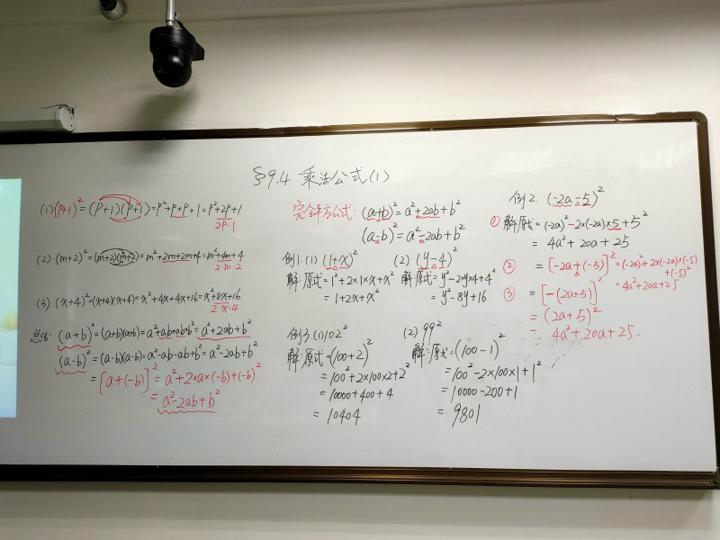 §9.4 乘法公式(1)
(1) (p+1)²=(p+1)(p+1)=p²+p+p+1=p²+2p+1
2·p·1
(2) (m+2)²=(m+2)(m+2)=m²+2m+2m+4=m²+4m+4
2·m·2
(3) (x+4)²=(x+4)(x+4)=x²+4x+4x+16=x²+8x+16
2·x·4
总结: (a+b)²=(a+b)(a+b)=a²+ab+ab+b²=a²+2ab+b²
(a-b)²=(a-b)(a-b)=a²-ab-ab+b²=a²-2ab+b²
=[a+(-b)]²=a²+2×a×(-b)+(-b)²
=a²-2ab+b²
完全平方公式: (a+b)²=a²+2ab+b²
(a-b)²=a²-2ab+b²
例1: (1) (1+x)²
解:原式=1²+2×1×x+x²
=1+2x+x²
(2) (y-4)²
解:原式=y²-2·y×4+4²
=y²-8y+16
例3.(1) 102²
解:原式=(100+2)²
=100²+2×100×2+2²
=10000+400+4
=10404
(2) 99²
解:原式=(100-1)²
=100²-2×100×1+1²
=10000-200+1
=9801
例2. (-2a-5)²
① 解:原式=(-2a)²-2×(-2a)×5+5²
=4a²+20a+25
② =[-2a+(-5)]²=(-2a)²+2×(-2a)×(-5)
+(-5)²
=4a²+20a+25
③ =[-(2a+5)]²
=(2a+5)²
=4a²+20a+25.